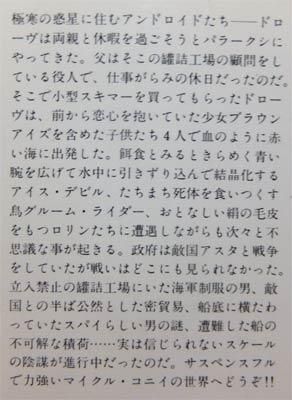 極寒の惑星に住むアンドロイドたち――ドロ
ーヴは両親と休暇を過ごそうとパラークシに
やってきた。父はそこの罐詰工場の顧問をし
ている役人で、仕事がらみの休日だったのだ。
そこで小型スキマーを買ってもらったドロー
ヴは、前から恋心を抱いていた少女ブラウン
アイズを含めた子供たち4人で血のように赤
い海に出発した。餌食とみるときらめく青い
腕を広げて水中に引きずり込んで結晶化する
アイス・デビル、たちまち死体を食いつくす
鳥グルーム・ライダー、おとなしい絹の毛皮
をもつロリンたちに遭遇しながらも次々と不
思議な事が起きる。政府は敵国アスタと戦争
をしていたが戦いはどこにも見られなかった。
立入禁止の罐詰工場にいた海軍制服の男、敵
国との半ば公然とした密貿易、船底に横たわ
っていたスパイらしい男の謎、遭難した船の
不可解な積荷……実は信じられないスケール
の陰謀が進行中だったのだ。サスペンスフル
で力強いマイクル・コニイの世界へどうぞ!!